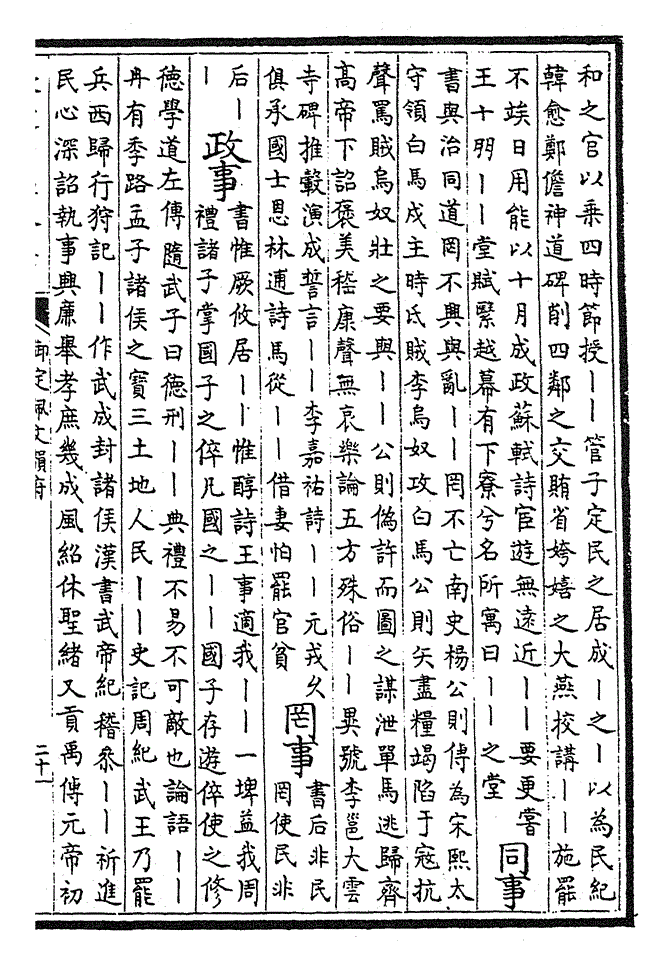 和之官以乘四時節授丨丨管子定民之居成丨之丨以為民紀
韓愈鄭儋神道碑削四鄰之交賄省姱嬉之大燕校講丨丨施罷
不竢日用能以十月成政蘇軾詩宦遊無遠近丨丨要更嘗
王十朋丨丨堂賦緊越幕有下寮兮名所寓曰丨丨之堂
同事
書與治同道罔不興與亂丨丨罔不亡南史楊公則傳為宋熙太
守領白馬戍主時氐賊李烏奴攻白馬公則矢盡糧竭陷于寇抗
聲罵賊烏奴壯之要與丨丨公則偽許而圖之謀泄單馬逃歸齊
高帝下詔褒美嵇康聲無哀樂論五方殊俗丨丨異號李邕大雲
寺碑推轂演成誓言丨丨李嘉祐詩丨丨元戎久
俱承國士恩林逋詩馬從丨丨借妻怕罷官貧
罔事
書后非民
罔使民非
后丨
丨
政事
書惟厥攸居丨丨惟醇詩王事適我丨丨一埤益我周
禮諸子掌國子之倅凡國之丨丨國子存遊倅使之修
德學道左傳隨武子曰德刑丨丨典禮不易不可敵也論語丨丨
冉有季路孟子諸侯之寶三土地人民丨丨史記周紀武王乃罷
兵西歸行狩記丨丨作武成封諸侯漢書武帝紀稽參丨丨祈進
民心深詔執事興廉舉孝庶幾成風紹休聖緒又貢禹傳元帝初
御定佩文韻府
二十一